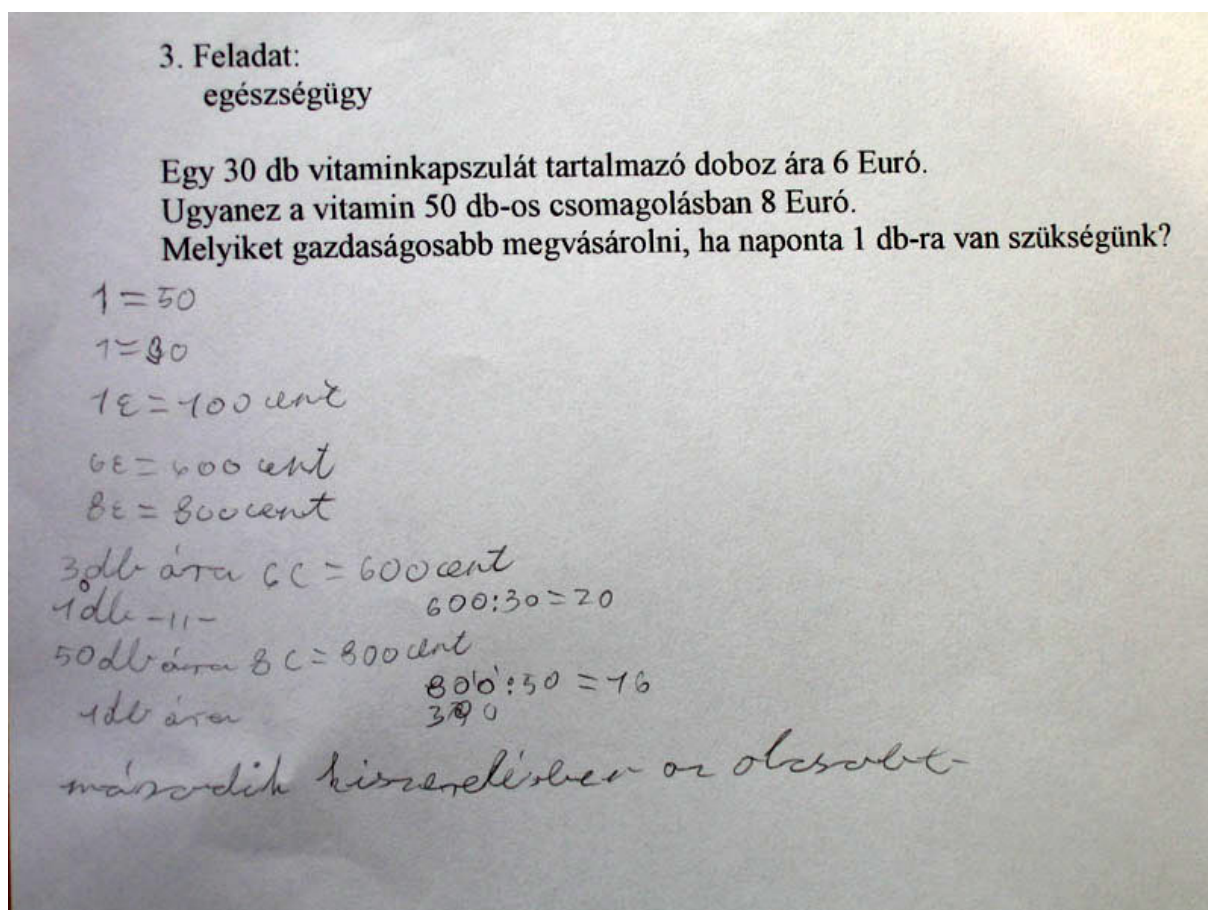 3. Feladat:
egészségügy
Egy 30 db vitaminkapszulát tartalmazó doboz ára 6 Euró.
Ugyanez a vitamin 50 db-os csomagolásban 8 Euró.
Melyiket gazdaságosabb megvásárolni, ha naponta 1 db-ra van szükségünk?
1=50
1=30
1€=100 cent
6€=600 cent
8€=800cent
30db ára 6€=600cent
1db -11- 600:30=20
50db ára 8€=800cent
800:50=16
1db ára 300
második kiszerelésben az olcsobb